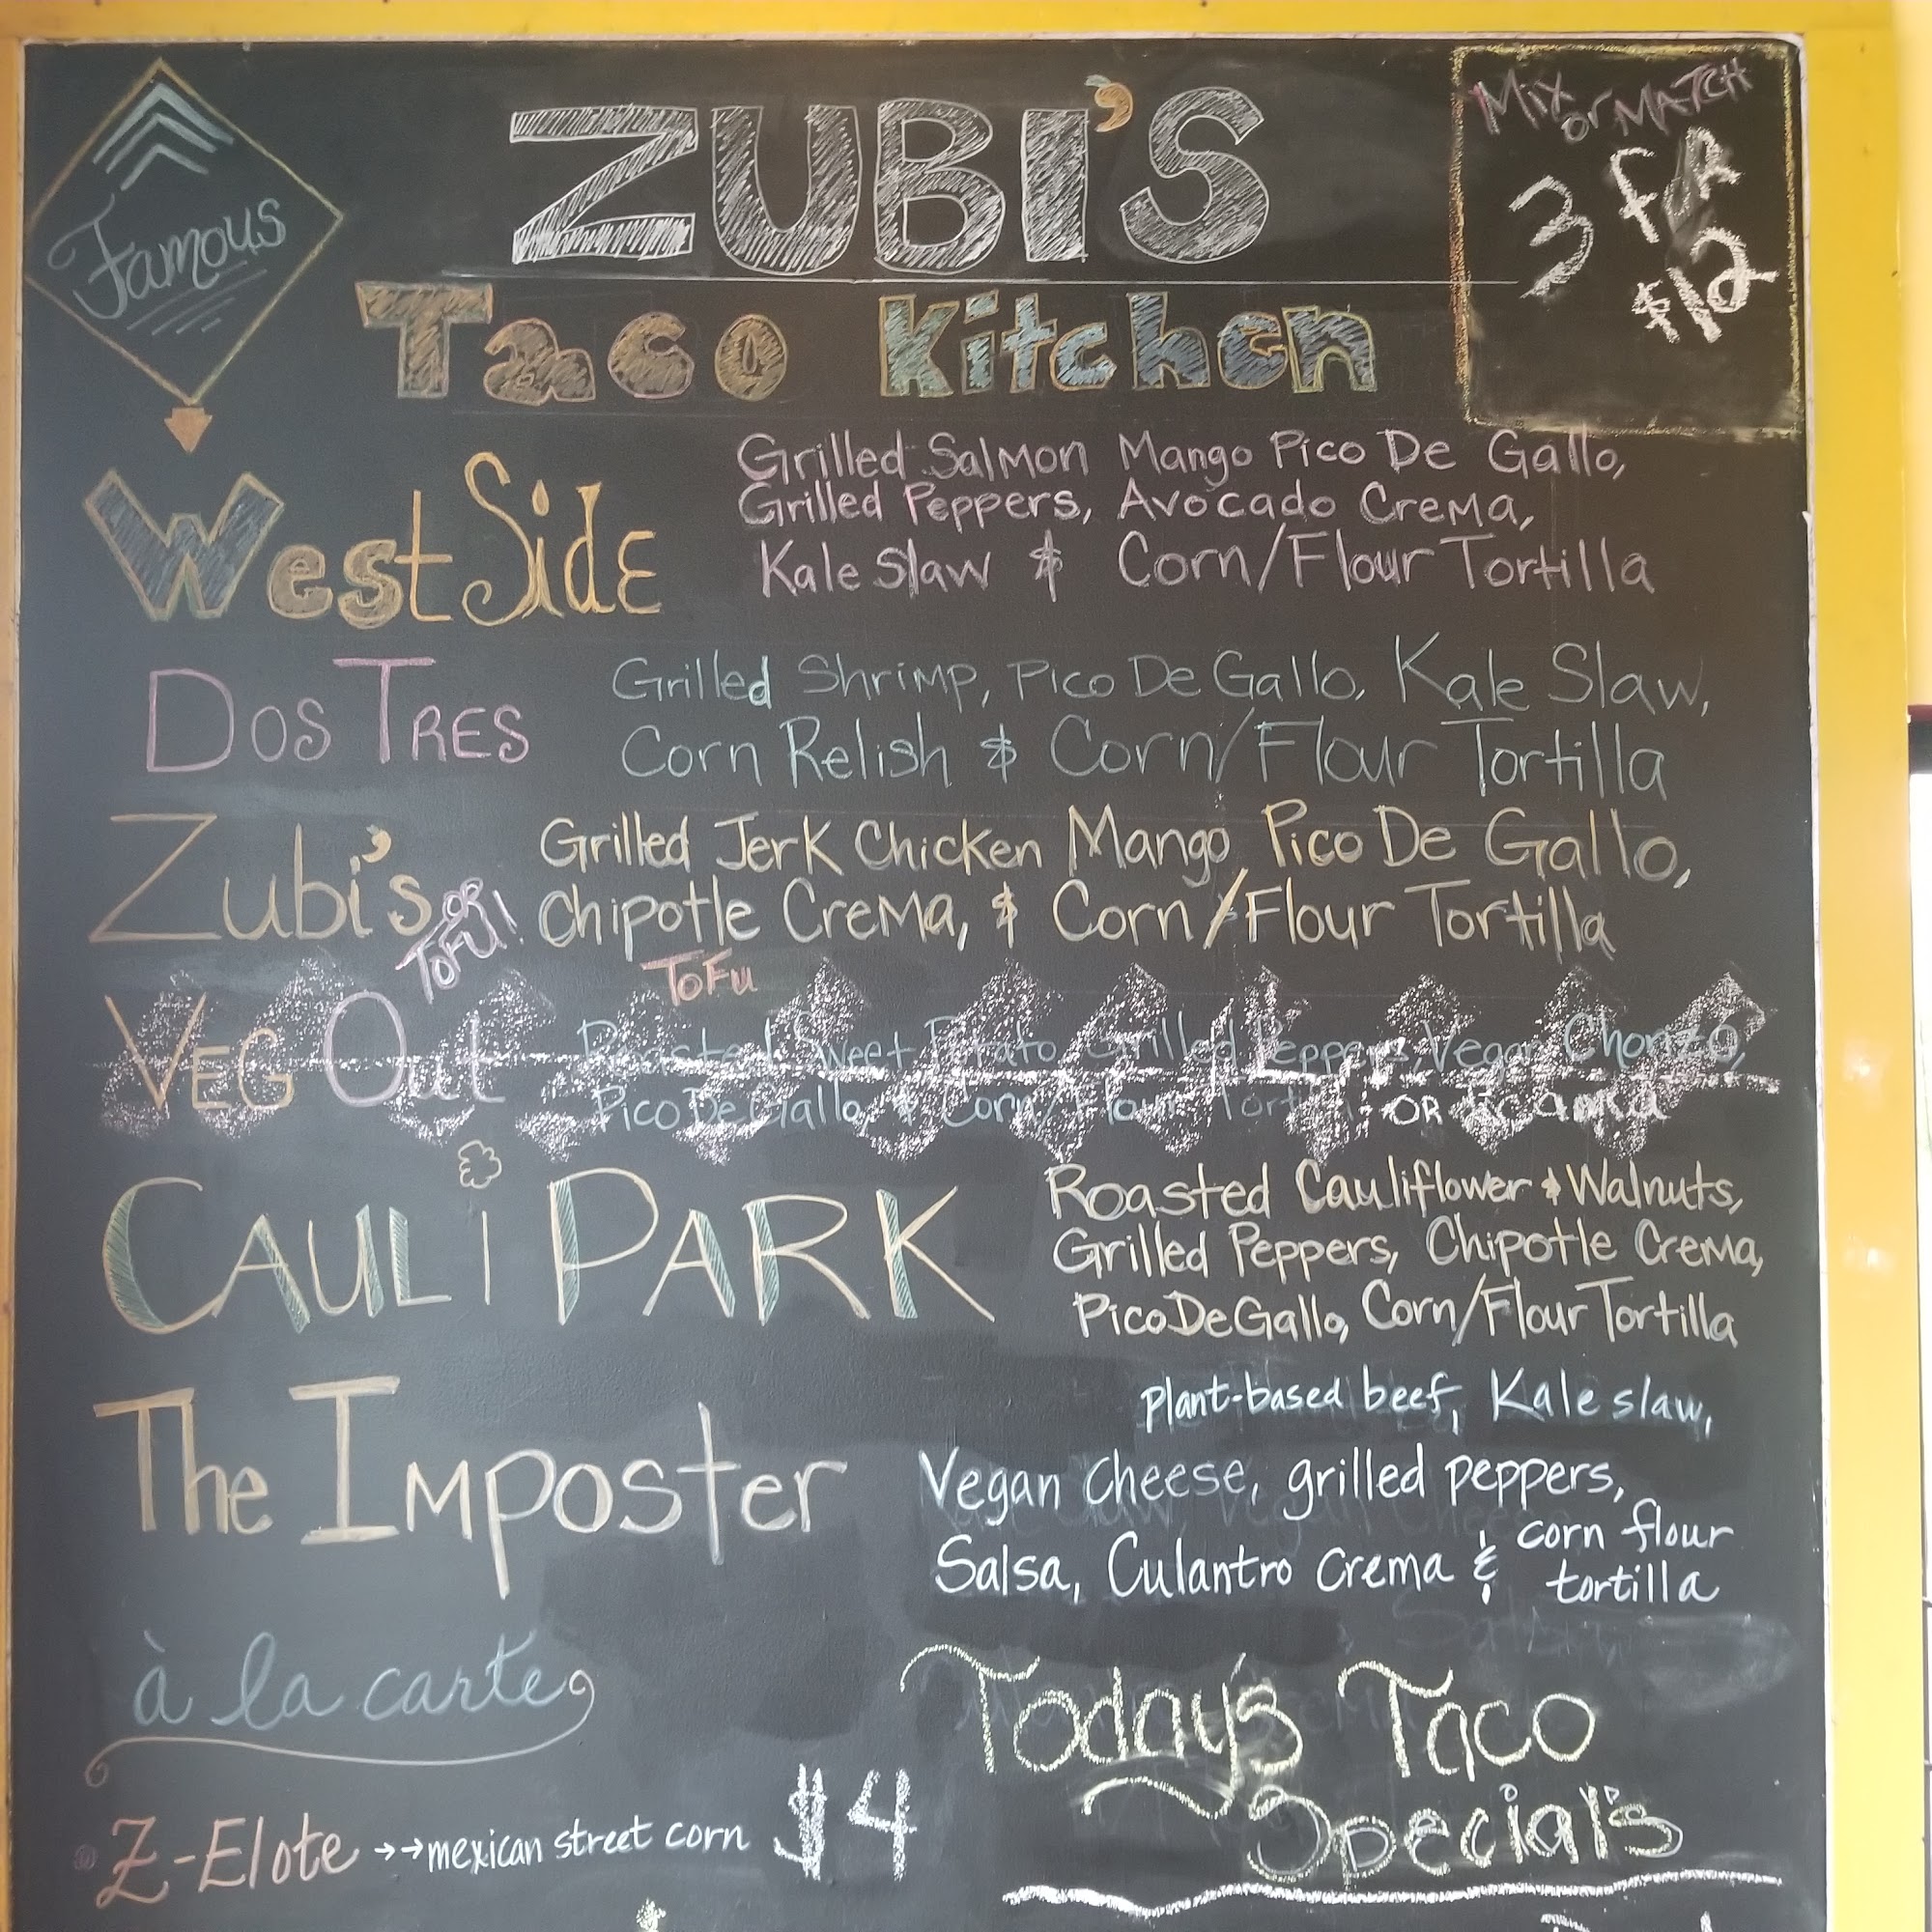 Famous
ZUBI'S
Taco Kitchen
Mix or MATCH
3 FOR
$12
West Side
Grilled Salmon Mango Pico De Gallo,
Grilled Peppers, Avocado Crema,
Kale Slaw & Corn/Flour Tortilla
Dos Tres
Grilled Shrimp, Pico De Gallo, Kale Slaw,
Corn Relish & Corn/Flour Tortilla
Zubi's
OR
TOFU!
Grilled Jerk Chicken Mango Pico De Gallo,
Chipotle Crema, & Corn/Flour Tortilla
TOFU
VEG Out
Roasted Sweet Potato Grilled Peppers Vegan Chorizo,
Pico De Gallo, & Corn/Flour Tortilla OR
CAULi PARK
Roasted Cauliflower & Walnuts,
Grilled Peppers, Chipotle Crema,
Pico De Gallo, Corn/Flour Tortilla
The Imposter
plant-based beef, Kale slaw,
Vegan cheese, grilled peppers,
Salsa, Culantro crema & corn flour
tortilla
à la carte
Today's Taco
Special's
Z-Elote →→ mexican street corn $4